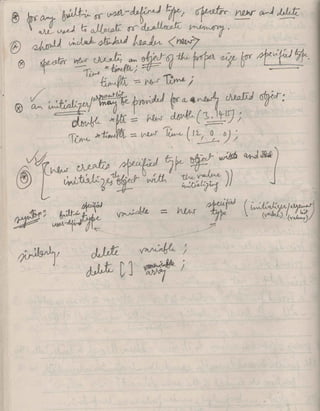 for any built-in or user-defined type, operator new and delete
are used to allocate or deallocate memory.
should include standard header <new>
operator new creates an object of the proper size for specified type.
Time * timePtr;
timePtr = new Time;
an initializer may be provided for a newly created object:
double *ptr = new double (3.1415);
Time *timePtr = new Time (12, 0, 0);
(new creates specified type object and
initializes the object with the value
initializing))
syntax: built-in specified type variable = new specified type (initializer / argument
user-defined (value) / list (values))
similarly, delete variable ;
delete [] variable ;
array